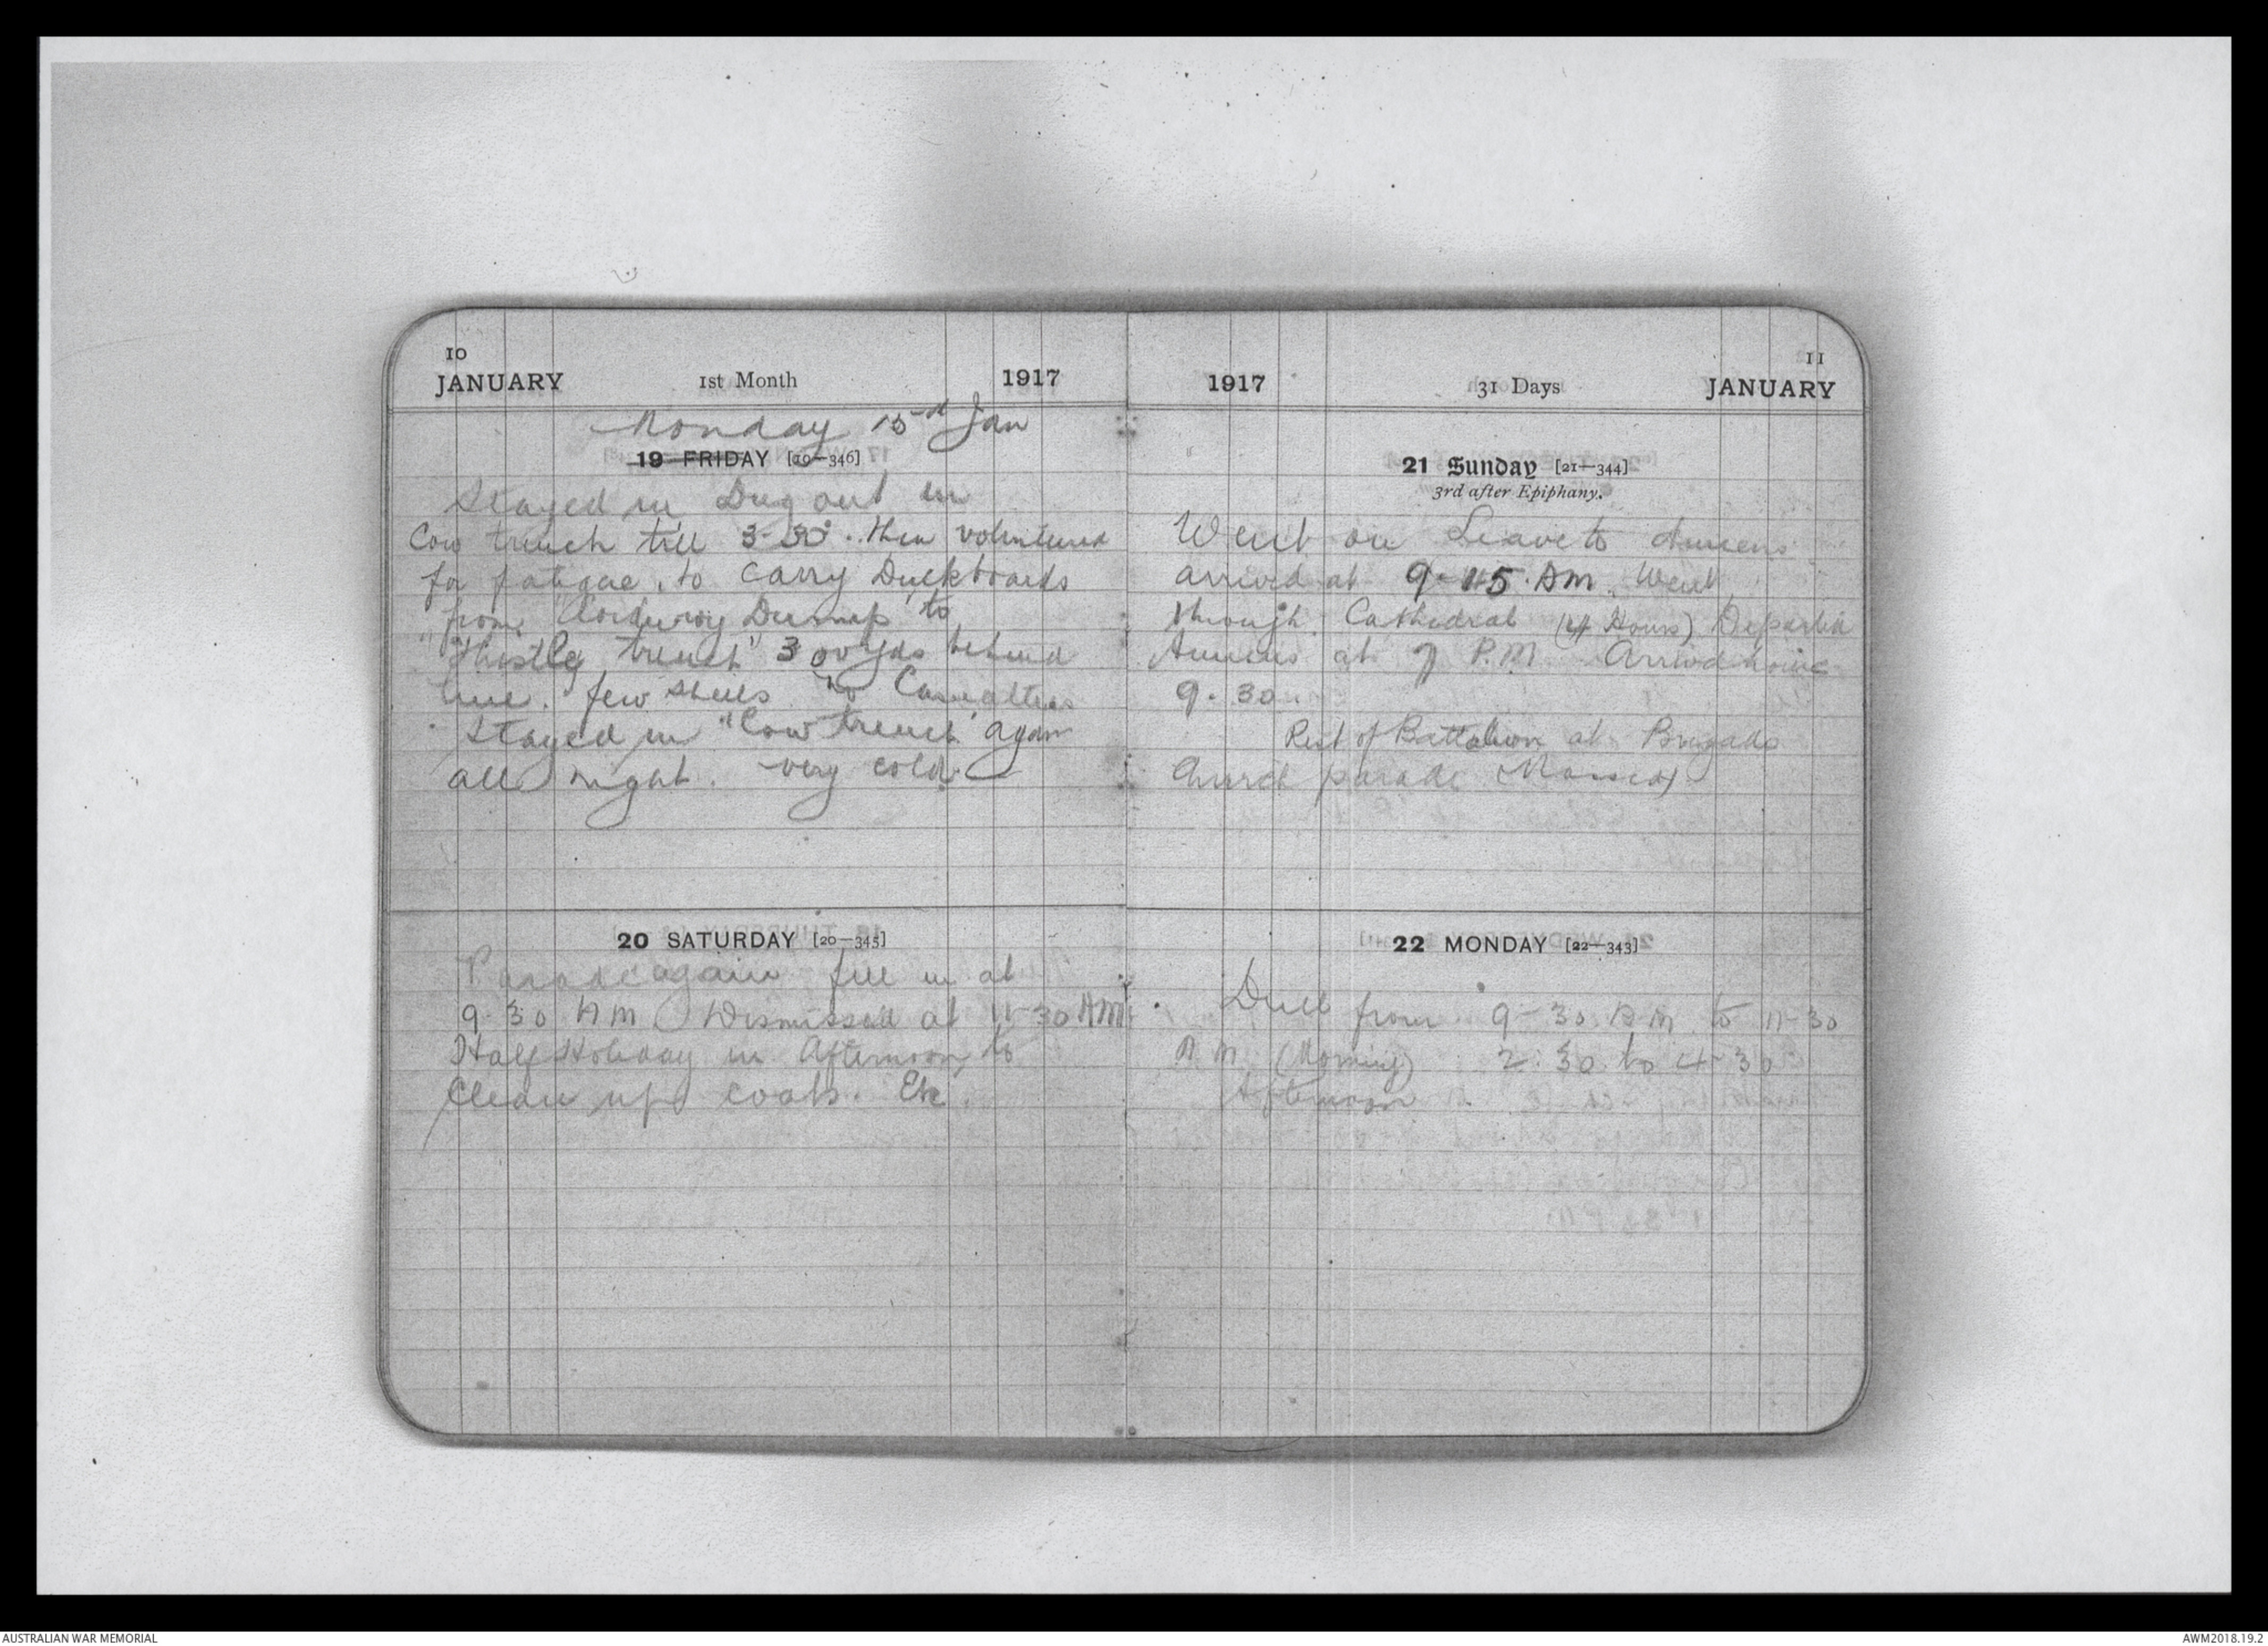 10
JANUARY 1st Month 1917
Monday 15th Jan
19 FRIDAY [19—346]
Stayed in Dug out in
Cow trench till 3-30. then voluntured
for fatigue, to carry Duckboards
from "Corduroy Dump" to
"Thistle trench" 300 yds behind
line. few shells no Casualties
Stayed in "Cow trench" again
all night. very cold.
20 SATURDAY [20—345]
Parade again fell in at
9-30 AM Dismissed at 11-30 AM
Half Holiday in Afternoon to
Clean up coats. Etc.
11
1917 31 Days JANUARY
21 Sunday [21—344]
3rd after Epiphany.
Went on Leave to Amiens
arrived at 9-15 AM. Went
through Cathedral (4 Hours) Departed
Amiens at 7 P.M. Arrived home
9.30.
Rest of Battalion at Brigade
Church parade
22 MONDAY [22—343]
Drill from 9-30 A M to 11-30
A M (Morning) 2.30 to 4-30
Afternoon
AUSTRALIAN WAR MEMORIAL
AWM2018.19.2